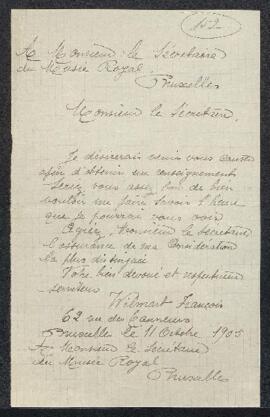 152
A Monsieur le Secrétaire
du Musée Royal
Bruxelles
Monsieur le Secrétaire,
Je désirerais venir vous
afin d'obtenir un renseignement
Serez vous assez bon de bien
vouloir me faire savoir l'heure
que je pourrai vous voir
Agréez, Monsieur le Secrétaire
l'assurance de ma Considération
la plus distinguée
Votre bien dévoué et respectueux
serviteur
Wilmart François
62 rue des Tanneurs
Bruxelles le 11 Octobre 1905
A Monsieur le Secrétaire
du Musée Royal
Bruxelles